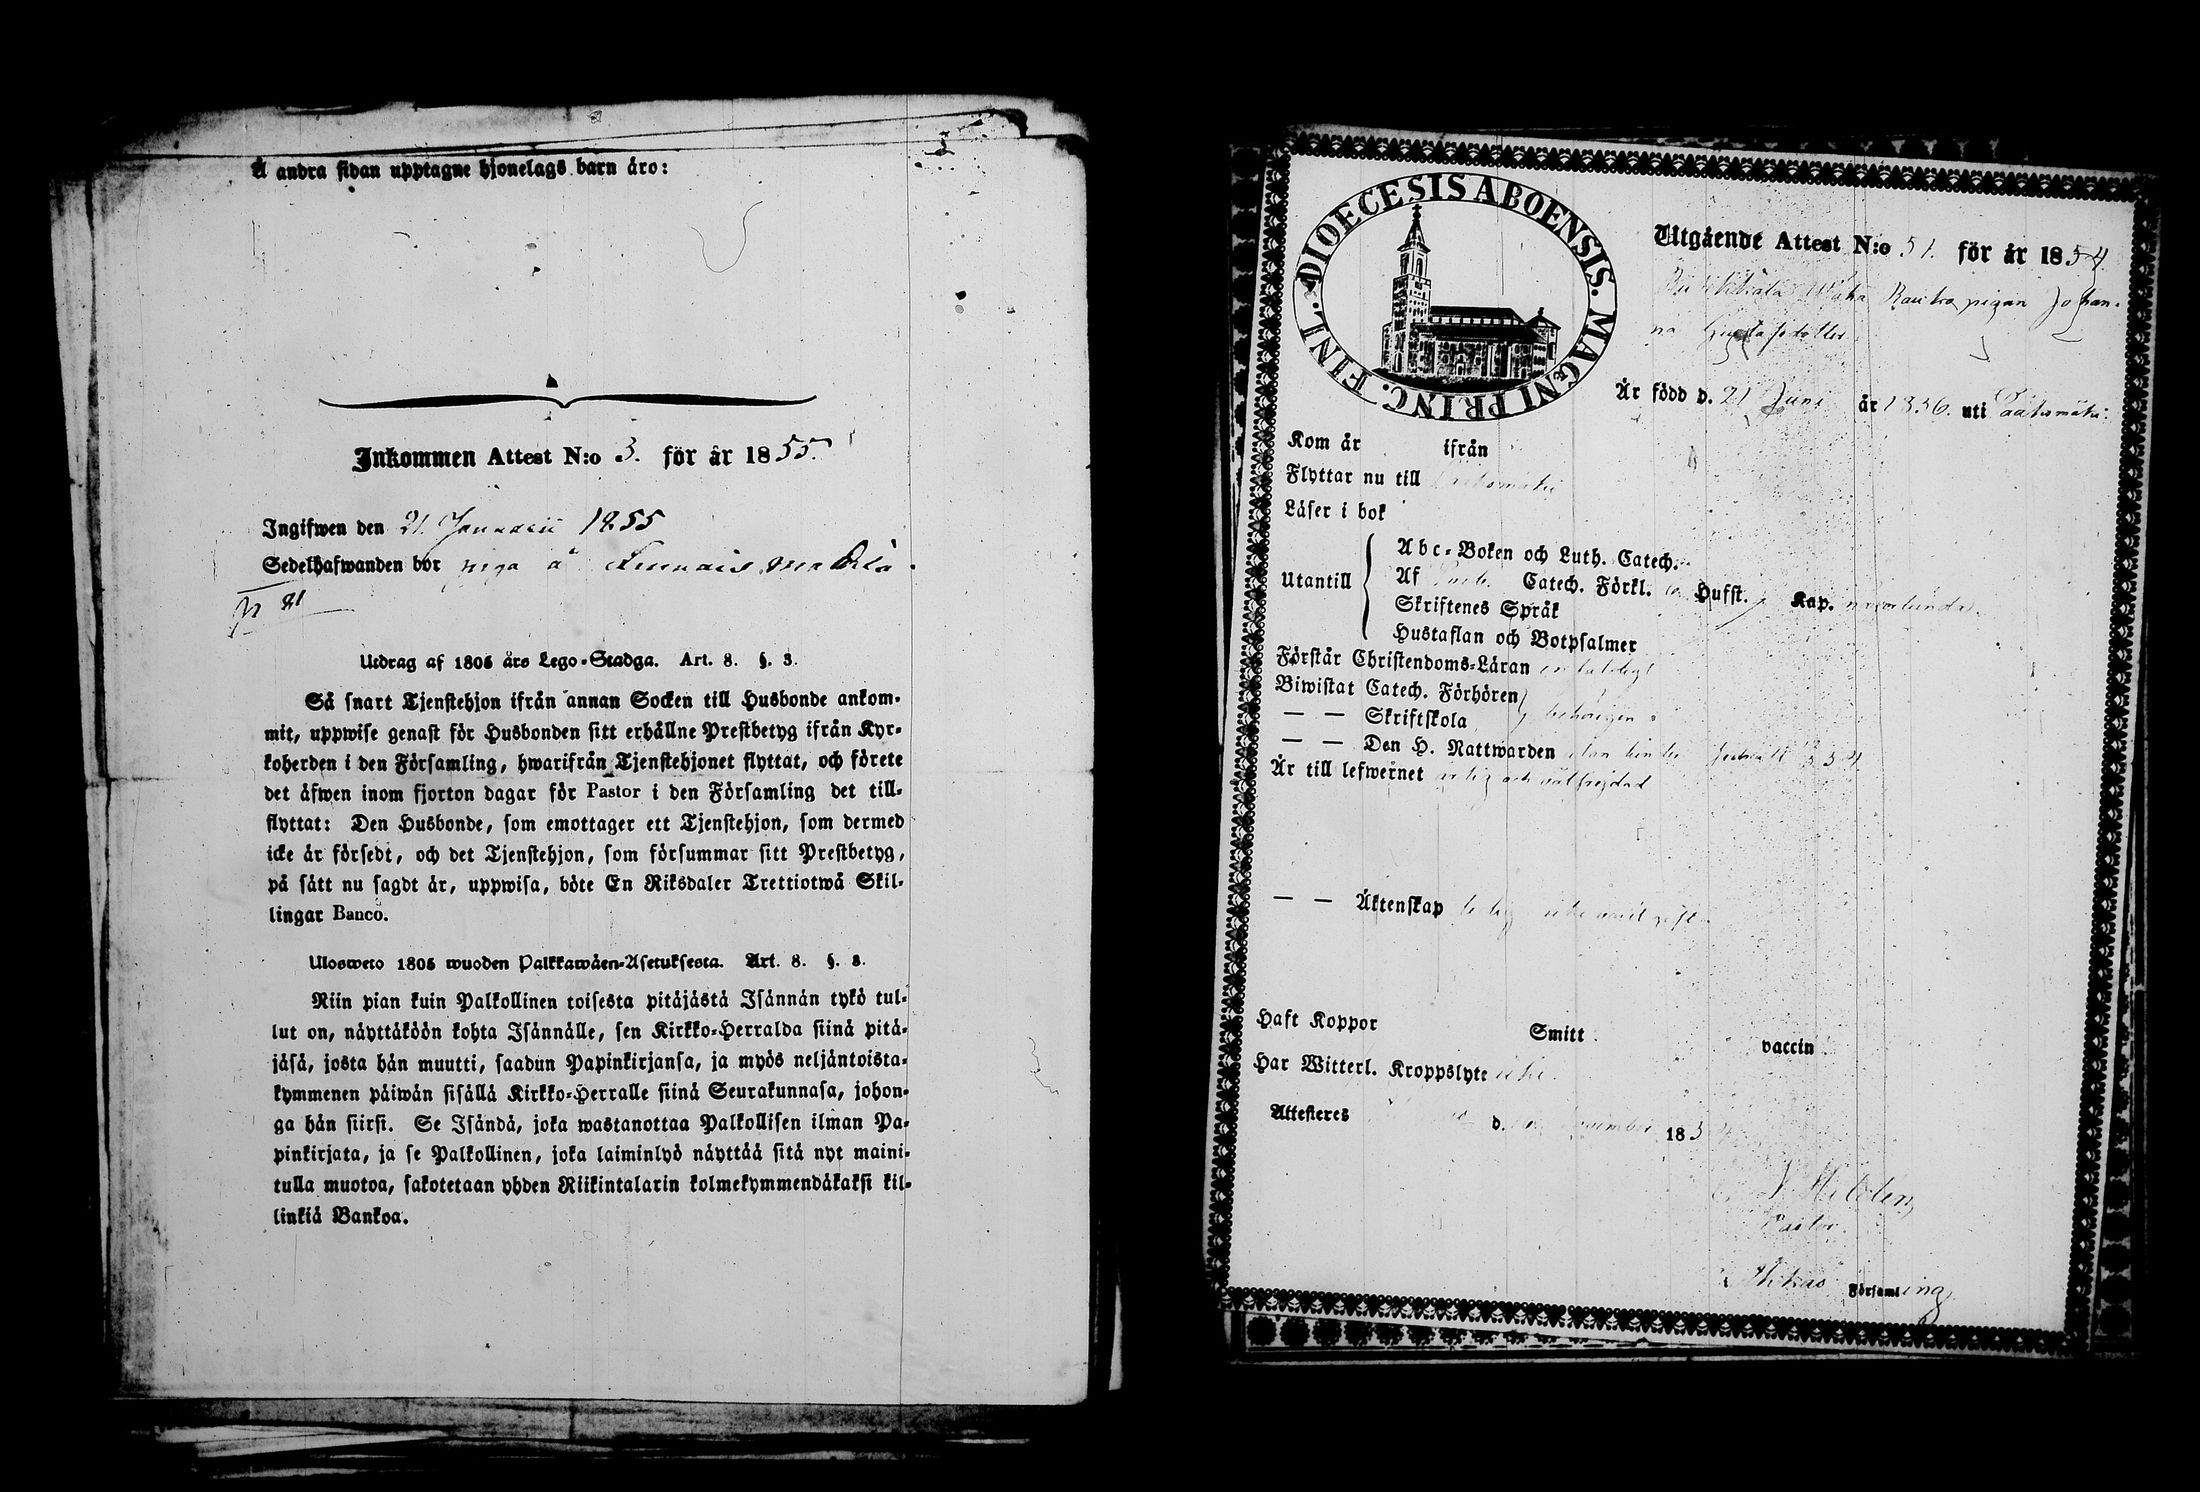 Å andra sidan upptagne hjonelags barn äro:
Inkommen Attest N:o 3. för år 1855.
Ingifwen den 21. Januarii 1855
Sedelhafwanden bor piga å
p 21
Utdrag af 1805 års Lego-Stadga. Art. 8. §. 3.
Så snart Tjenstehjon ifrån annan Socken till Husbonde ankom-
mit, uppwise genast för Husbonden sitt erhållne Prestbetyg ifrån Kyr-
koherden i den Församling, hwarifrån Tjenstehjonet flyttat, och förete
det äfwen inom fjorton dagar för Pastor i den Församling det till-
flyttat: Den Husbonde, som emottager ett Tjenstehjon, som dermed
icke är försedt, och det Tjenstehjon, som försummar sitt Prestbetyg,
på sätt nu sagdt är, uppwisa, böte En Riksdaler Trettiotwå Skil-
lingar Banco.
Ulosweto 1805 wuoden Palkkawäen-Asetuksesta. Art. 8. §. 3.
Niin pian kuin Palkollinen toisesta pitäjästä Isännän tykö tul-
lut on, näyttäköön kohta Isännälle, sen Kirkko-Herralda siinä pitä-
jäsä, josta hän muutti, saadun Papinkirjansa, ja myös neljäntoista-
kymmenen päiwän sisällä Kirkko-Herralle siinä Seurakunnasa, johon-
ga hän siirsi. Se Isändä, joka wastanottaa Palkollisen ilman Pa-
pinkirjata, ja se Palkollinen, joka laiminlyö näyttää sitä nyt maini-
tulla muotoa, sakotetaan yhden Riikintalarin kolmekymmendäkaksi kil-
linkiä Bankoa.
DIOECESIS ABOENSIS. MAGNI PRINC. FINL.
Utgående Attest N:o 51. för år 1854.
Rautio pigan Johan-
na Gustafsdotter
Är född d. 21 Juni år 1836. uti Säkismäki.
Kom år ifrån
Flyttar nu till
Läser i bok
Utantill
Abc-Boken och Luth. Catech.
Af Catech. Förkl. Hufst. Kap. nöjaktigt
Skriftenes Språk
Hustaflan och Botpsalmer
Förstår Christendoms-Läran
Biwistat Catech. Förhören
— — Skriftskola behörigen
— — Den H. Nattwarden
Är till lefwernet ärlig och välfrejdad
— — Äktenskap ledig
Haft Koppor Smitt vaccin
Har Witterl. Kroppslyte icke.
Attesteres d. November 1854
Pastor
Församling